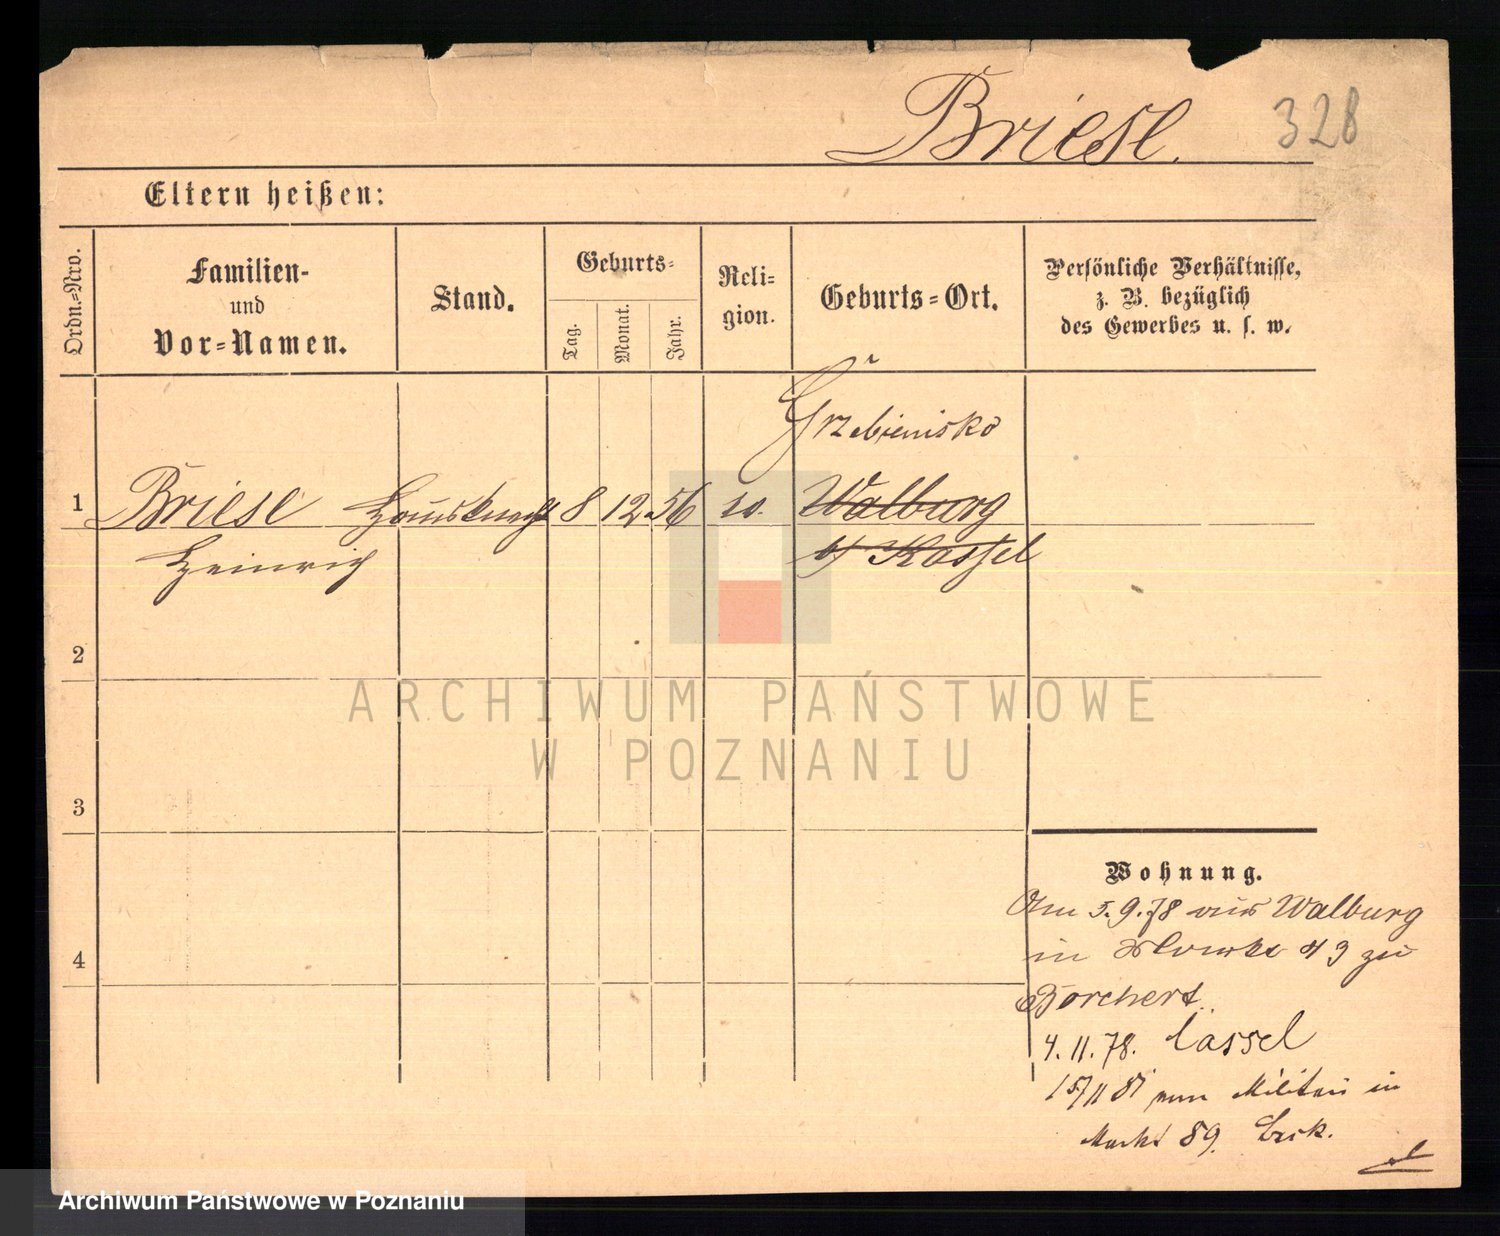 Briese. 328
Eltern heißen:
Ordn.-Nro.
Familien-
und
Vor-Namen.
Stand.
Geburts-
Tag.
Monat.
Jahr.
Reli-
gion.
Geburts-Ort.
Persönliche Verhältnisse,
z. B. bezüglich
des Gewerbes u. s. w.
Grzebienisko
1 Briese Hausknecht 8 12 56 Walburg
Heinrich b/ Kassel
2
ARCHIWUM PAŃSTWOWE
W POZNANIU
3
Wohnung.
Am 5.9.78 aus Walburg
4
in 43 zu
Borchert.
4.11.78. Cassel
15/11 81 vom Militair in
Markt 89.
Archiwum Państwowe w Poznaniu